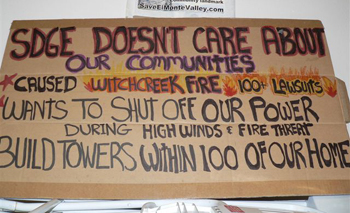 community landmark
SaveElMonteValley.com
SDGE DOESNT CARE ABOUT
OUR COMMUNITIES
CAUSED WITCHCREEK FIRE 100+ LAWSUITS
WANTS TO SHUT OFF OUR POWER
DURING HIGH WINDS & FIRE THREAT
BUILD TOWERS WITHIN 100 OF OUR HOME